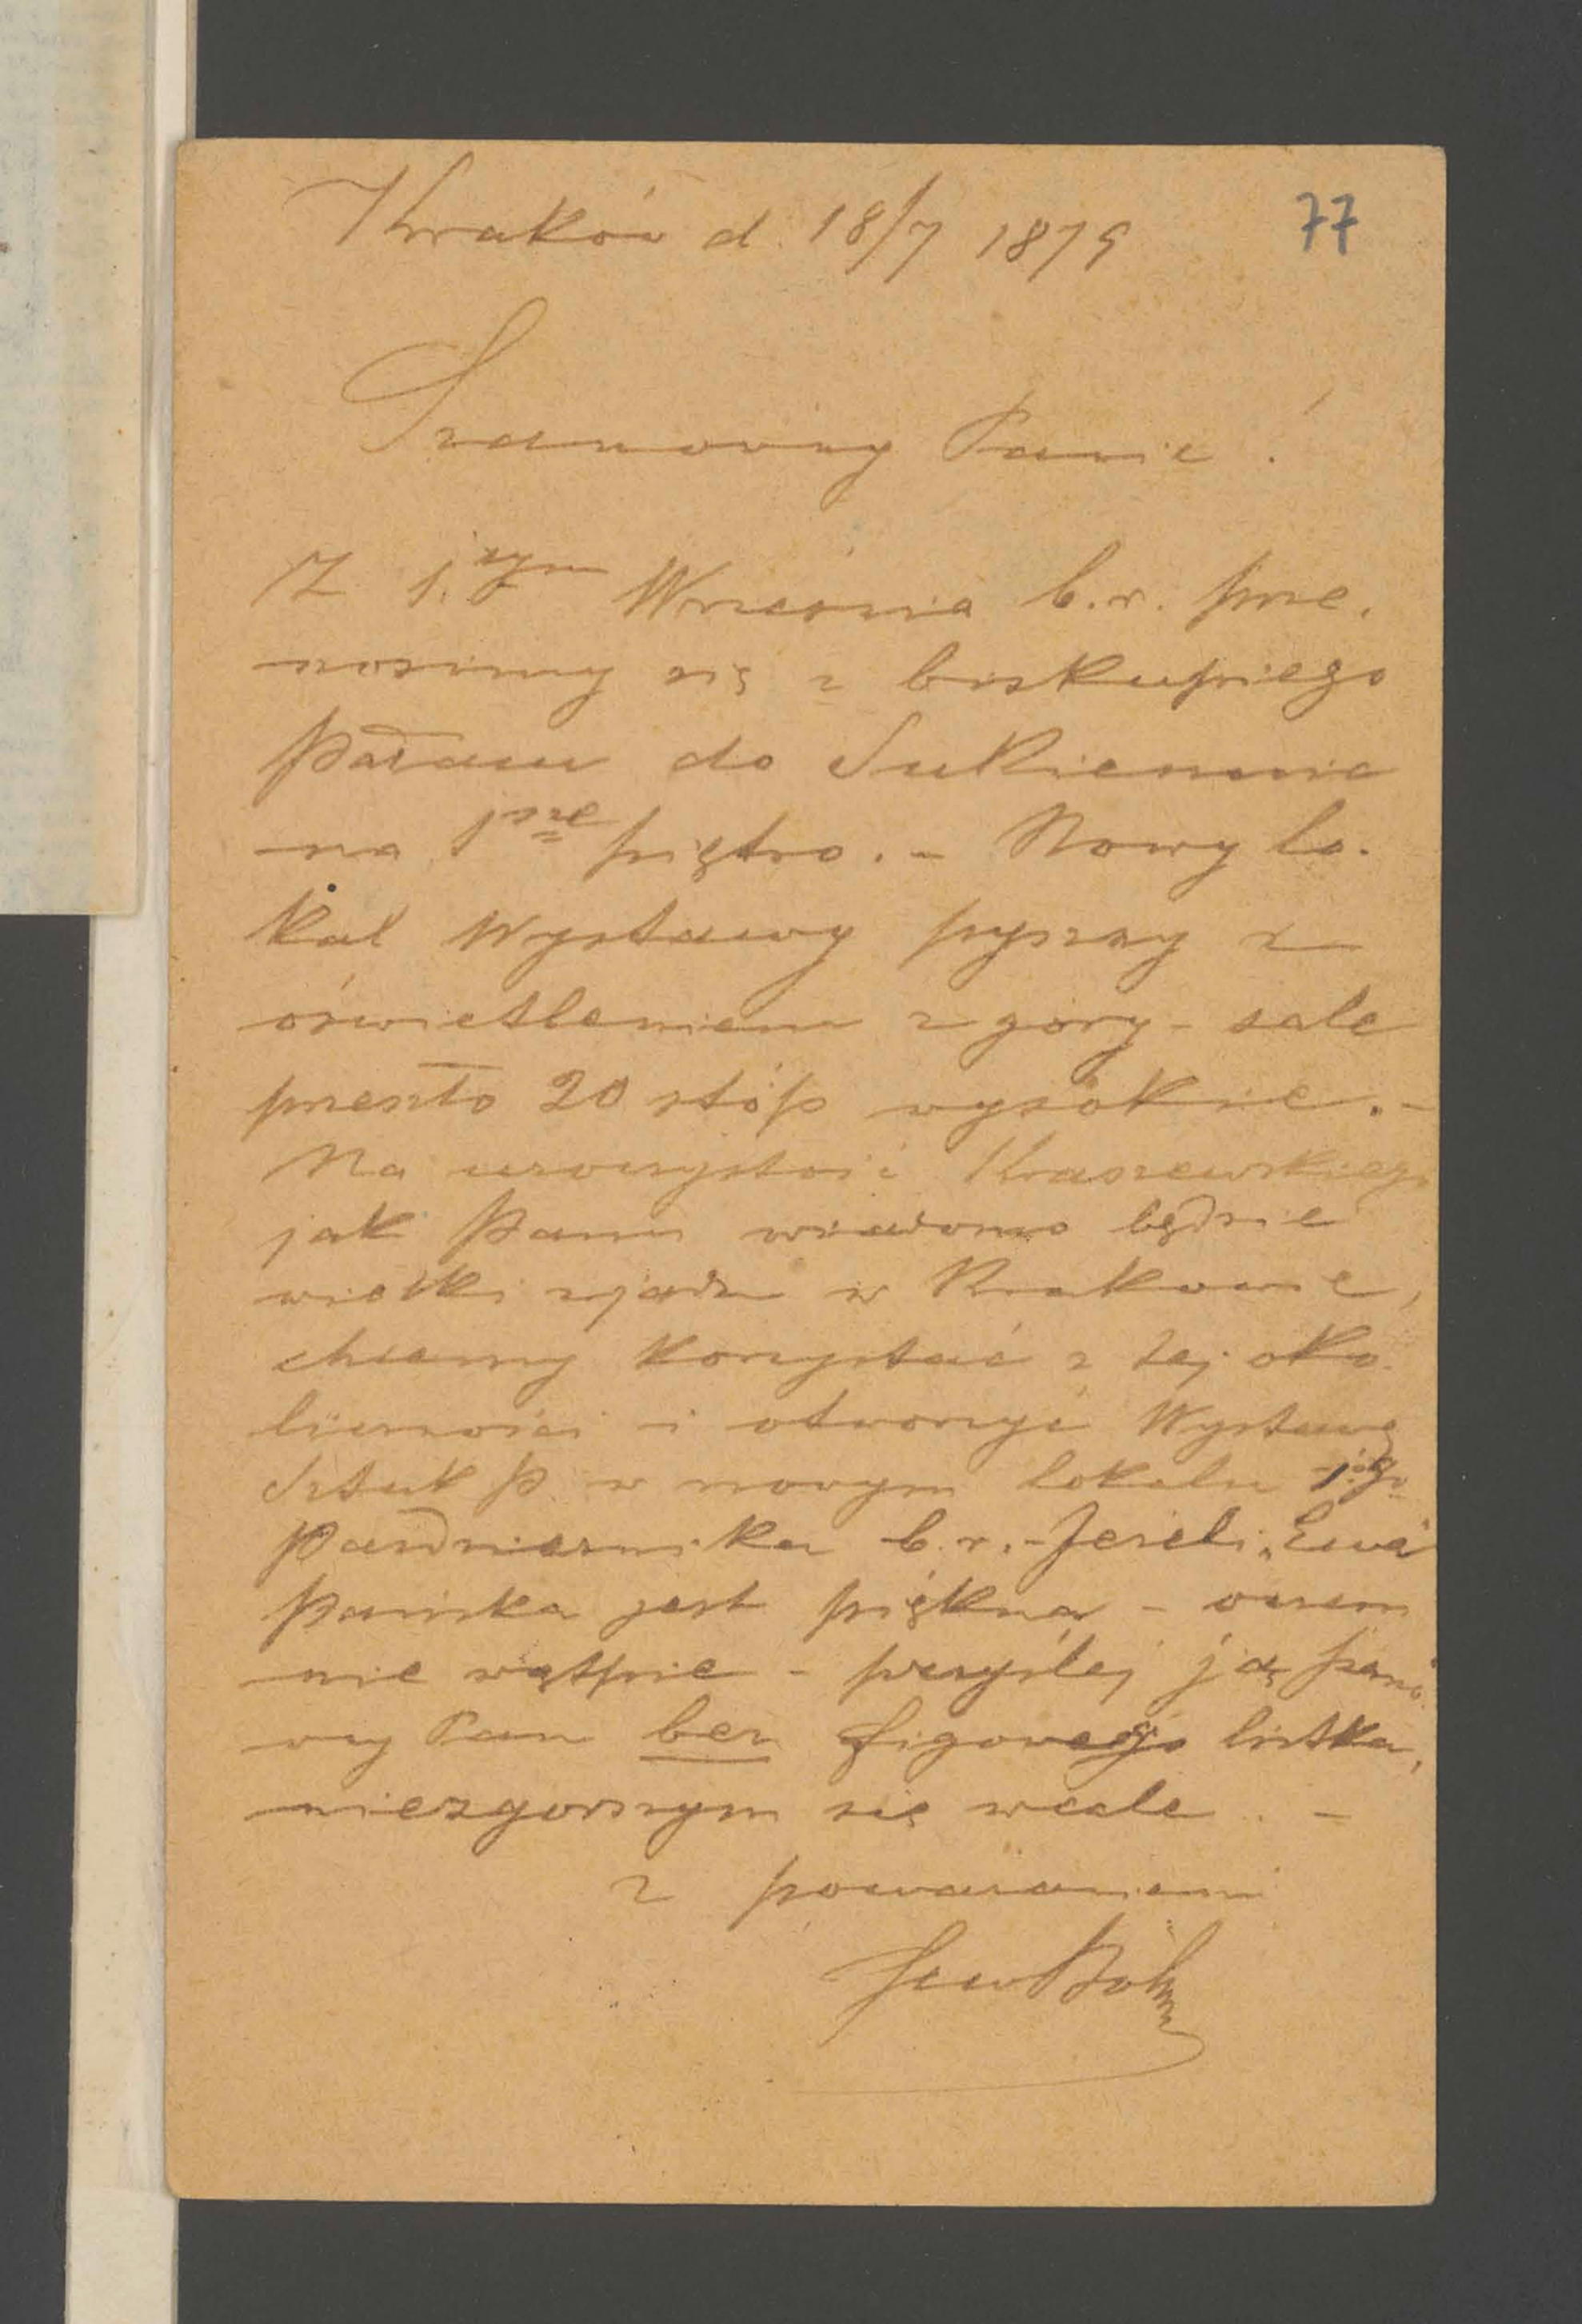 77
Kraków d. 18/7 1879
Szanowny Panie!
Z 1.szym Września b.r. prze-
nosimy się z biskupiego
pałacu do Sukiennic
na 1sze piętro. - Nowy lo-
kal Wystawy pyszny z
oświetleniem z góry - sale
przeszło 20 stóp wysokie. -
Na uroczystość Kraszewskiego
jak Panu wiadomo będzie
wielki zjazd w Krakowie,
chcemy korzystać z tej oko-
liczności i otworzyć Wystawę
Sztuk P. w nowym lokalu 1.go
Października b.r. - Jeżeli „Ewa"
Pańska jest piękna - o czem
nie wątpię - przyślej ją
Pan bez figowego listka,
niezgorszym się wcale. -
z poważaniem